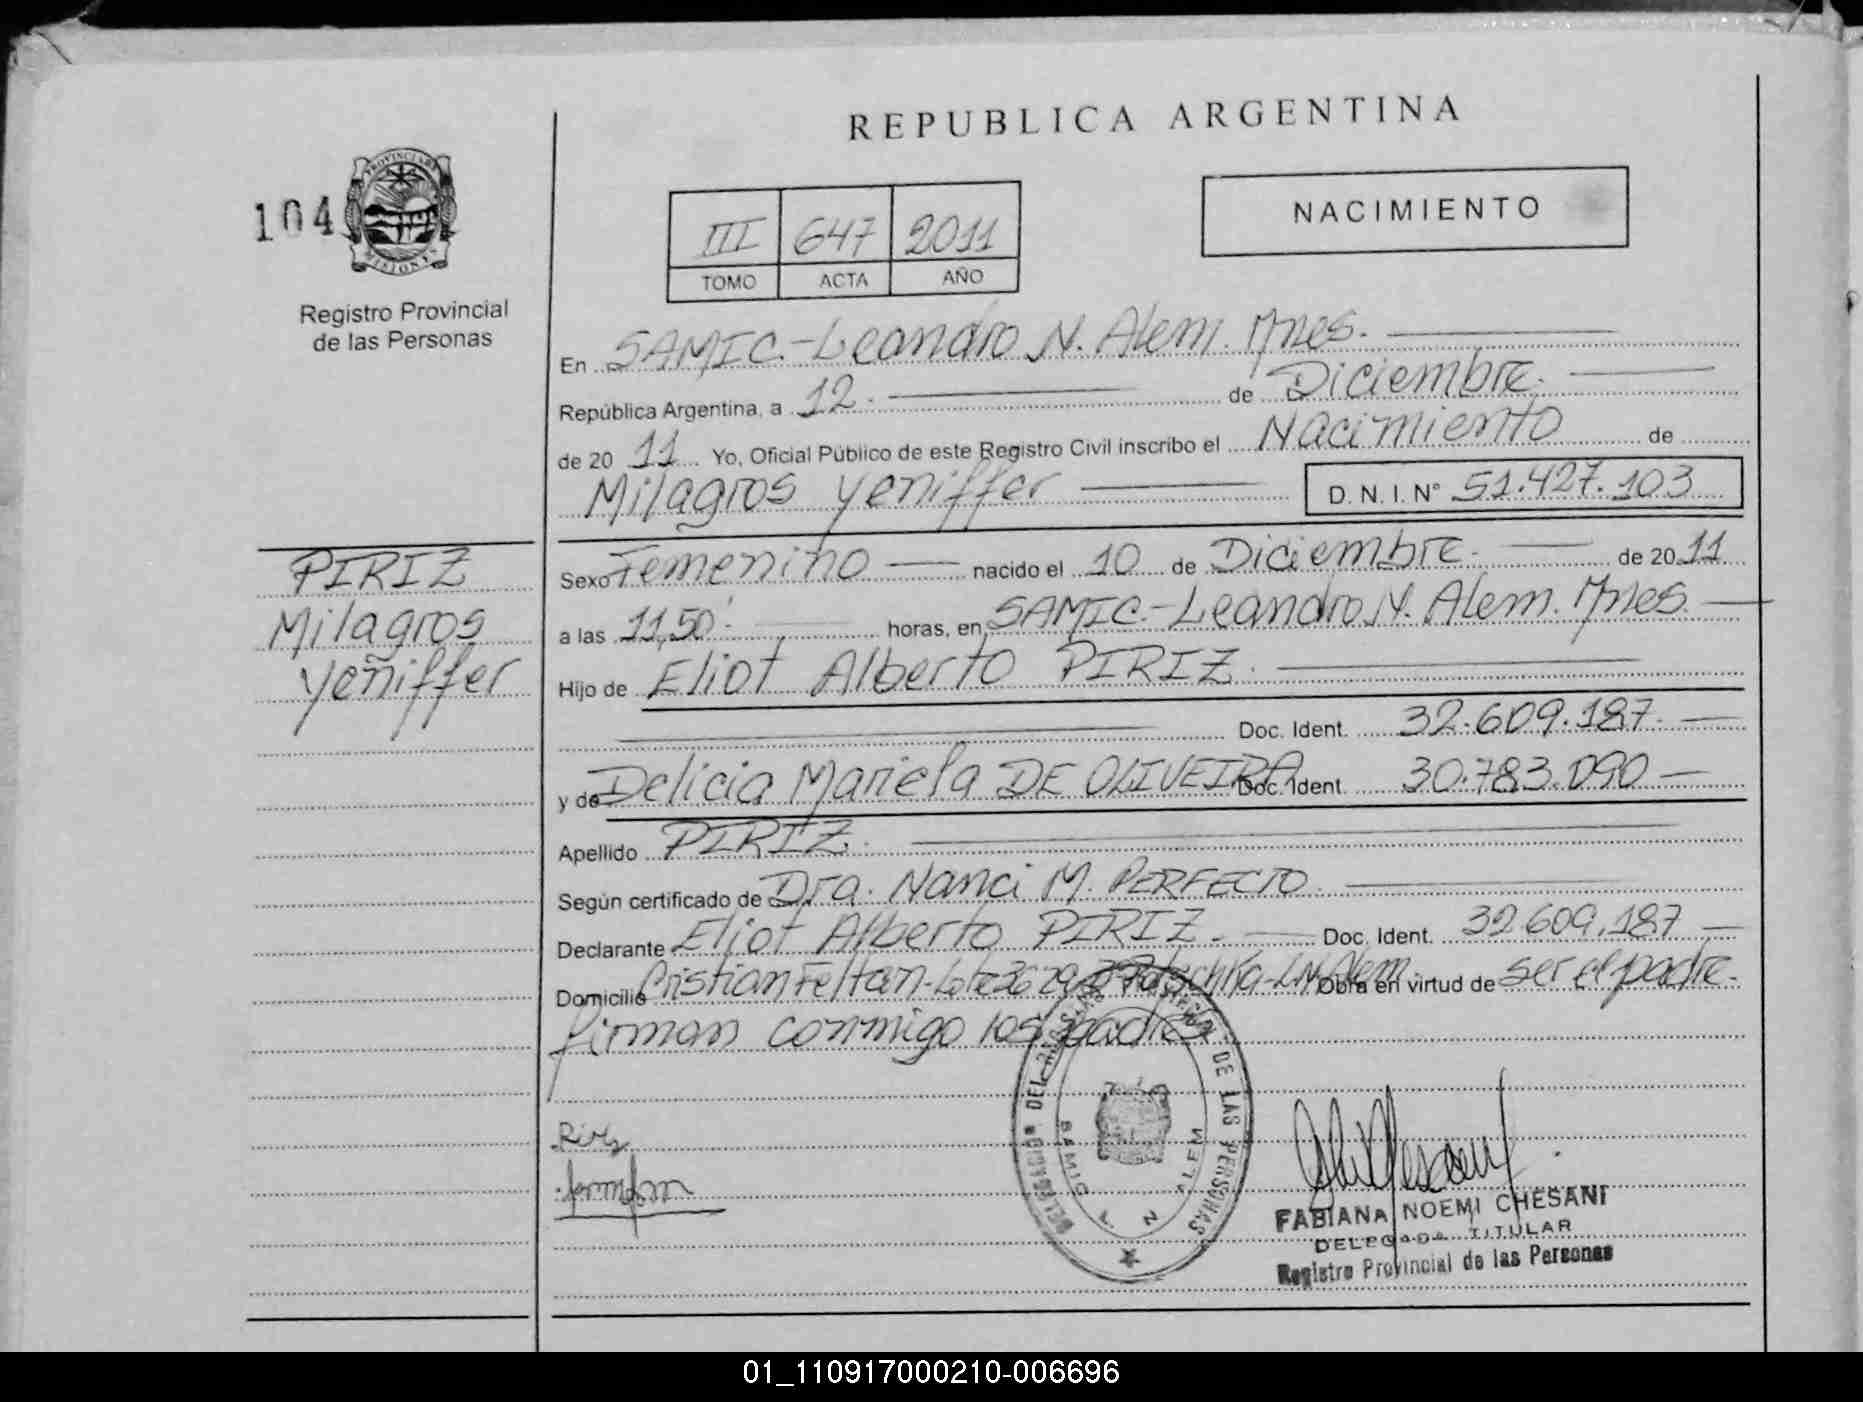 REPUBLICA ARGENTINA
104
PROVINCIA DE
MISIONES
Registro Provincial
de las Personas
III 647 2011
TOMO ACTA AÑO
NACIMIENTO
En SAMIC.-Leandro N. Alem. Mnes.
República Argentina, a 12. de Diciembre.
de 20 11 Yo, Oficial Público de este Registro Civil inscribo el Nacimiento de
Milagros Yeniffer D. N. I. N° 51.427.103
PIRIZ
Milagros
Yeñiffer
Sexo Femenino nacido el 10 de Diciembre. de 20 11
a las 11,50'. horas, en SAMIC.-Leandro N. Alem. Mnes.
Hijo de Eliot Alberto PIRIZ.
Doc. Ident. 32.609.187.
y de Delicia Mariela DE OLIVEIRA Doc. Ident. 30.783.090
Apellido PIRIZ.
Según certificado de Dra. Nanci M. PERFECTO.
Declarante Eliot Alberto PIRIZ. Doc. Ident. 32.609.187
Domicilio Cristian Feltan-Lote 36 L.N.Alem. Obra en virtud de ser el padre.
firman conmigo los padres
DE LAS PERSONAS
SAMIC L. N. ALEM
FABIANA NOEMI CHESANI
DELEGADA TITULAR
Registro Provincial de las Personas
01_110917000210-006696